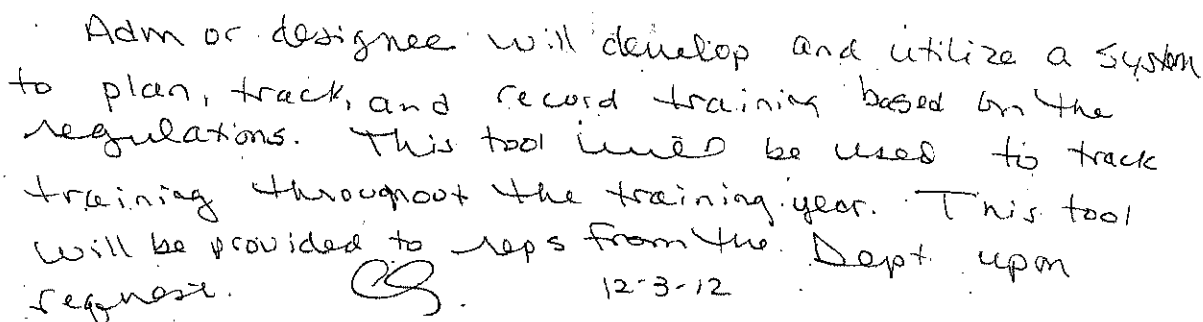 Adm or designee will develop and utilize a system
to plan, track, and record training based on the
regulations. This tool will be used to track
training throughout the training year. This tool
will be provided to reps from the Dept upon
request. 12-3-12